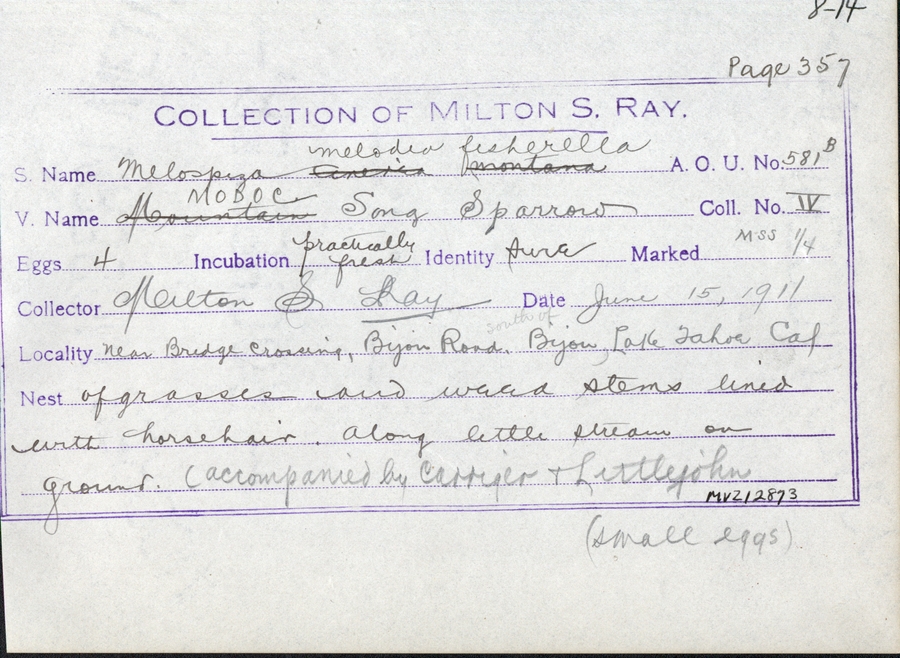 8-14
Page 357
COLLECTION OF MILTON S. RAY.
melodia fisherella
S. Name Melospiza cinerea montana A. O. U. No. 581B
MODOC
V. Name Mountain Song Sparrow Coll. No. IV
Eggs 4 Incubation practically fresh Identity Sure Marked MSS 1/4
Collector Milton S Ray Date June 15, 1911
south of
Locality near Bridge crossing, Bijou Road, Bijou, Lake Tahoe Cal
Nest of grasses and weed stems lined
with horsehair. Along little stream on
ground. (accompanied by Carriger & Littlejohn
MVZ12873
(small eggs)